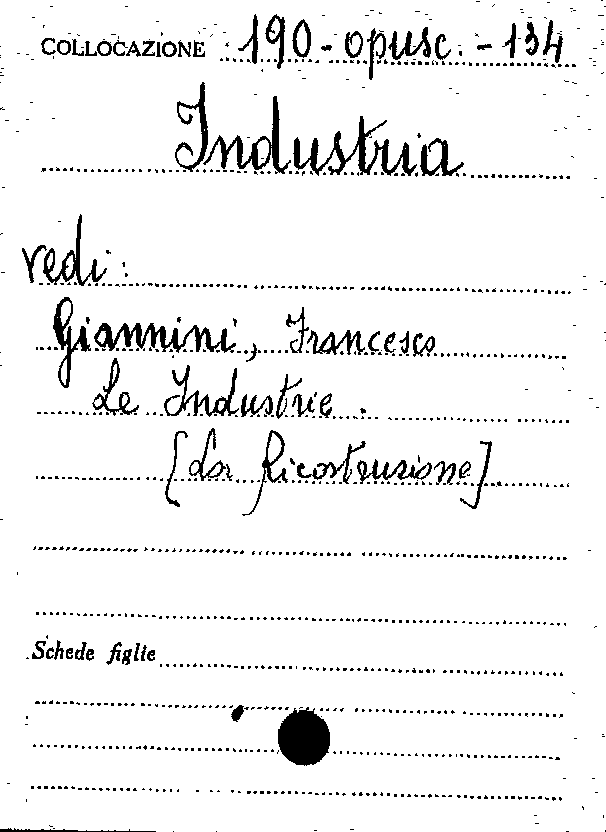 COLLOCAZIONE 190-opusc.-134
Industria
vedi:
Giannini, Francesco
Le Industrie.
[La Ricostruzione].
Schede figlie